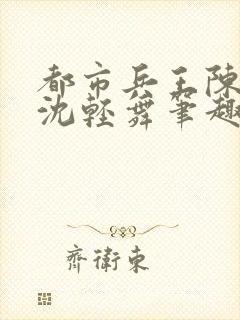 都市兵王陳
沈輕舞筆趣
齊衛東